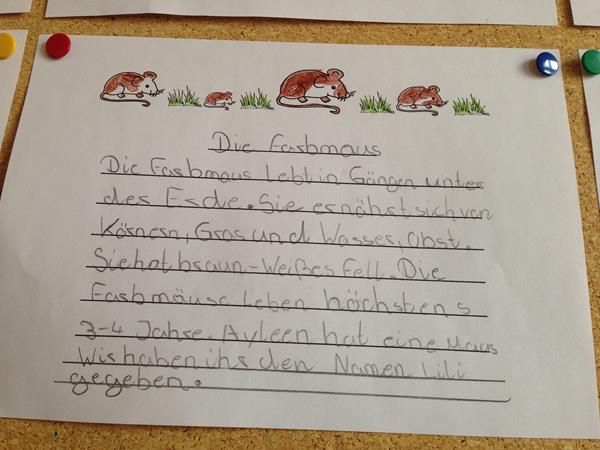 Die Farbmaus
Die Farbmaus Lebt in Gängen unter
der Erde. Sie ernährt sich von
Körnern, Gras und Wasser, Obst.
Sie hat braun-Weißes Fell. Die
Farbmäuse Leben höchstens
3-4 Jahre. Ayleen hat eine Maus
Wir haben ihr den Namen Lili
gegeben.